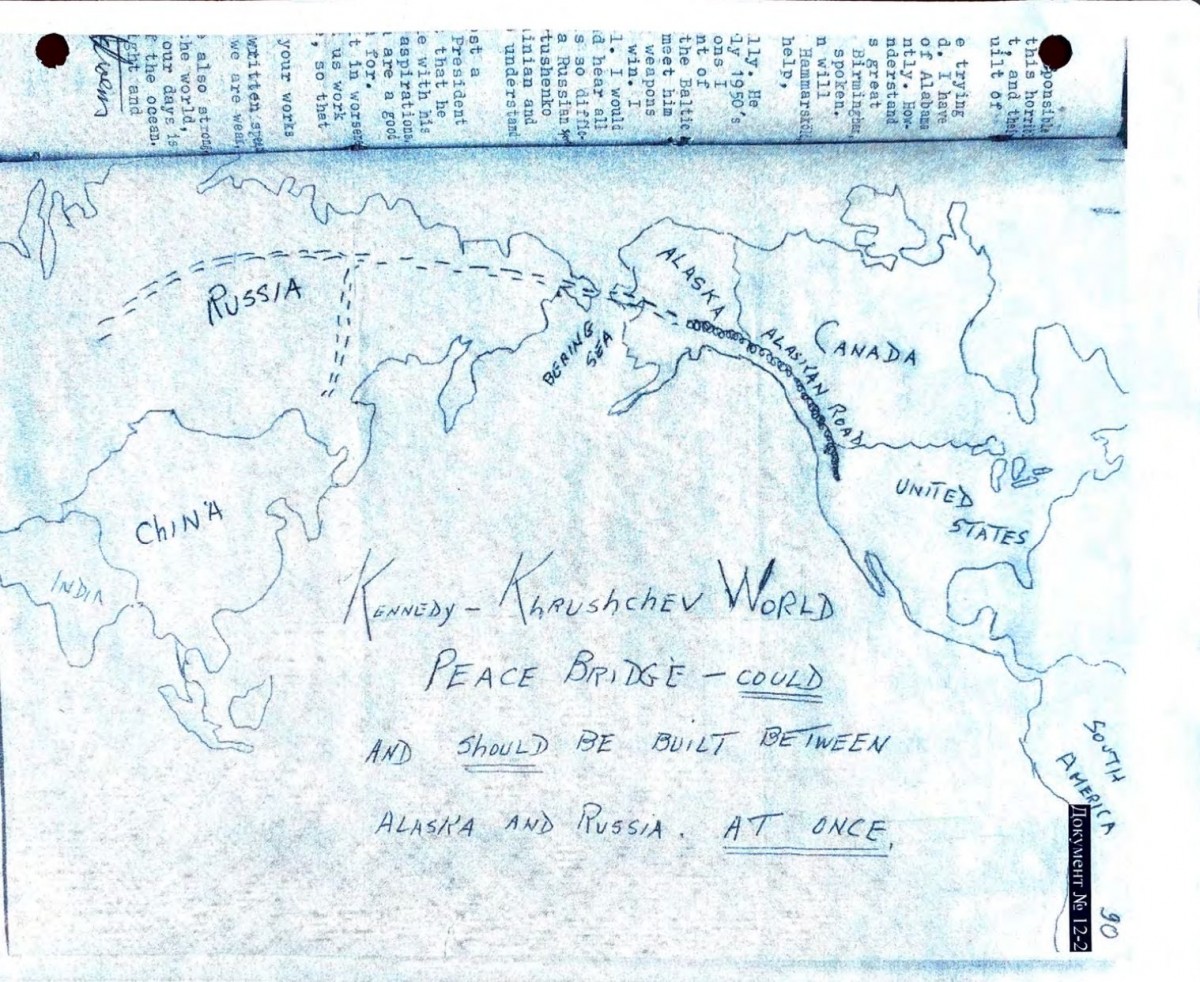 sponsible
this horrib
t, and the
uilt of
e trying
d. I have
of Alabama
ntly. How-
nderstand
s great
Birmingham
spoken.
n will
Hammarskö
help,
lly. He
ly 1950's
ons I
nt of
the Baltic
meet him
weapons
win. I
l. I would
d hear all
s so diffic
a Russian
tushenko
inian and
understand
st a
President
that he
e with his
aspirations
are a good
for.
t in worsen
us work
, so that
your works
written
we are
also strong
he world,
our days is
the ocean.
ght and
RUSSIA
ALASKA
BERING
SEA
ALASKAN ROAD
CANADA
UNITED
STATES
CHINA
INDIA
KENNEDY – KHRUSHCHEV WORLD
PEACE BRIDGE – COULD
AND SHOULD BE BUILT BETWEEN
ALASKA AND RUSSIA. AT ONCE.
SOUTH
AMERICA
Документ № 12-2
90